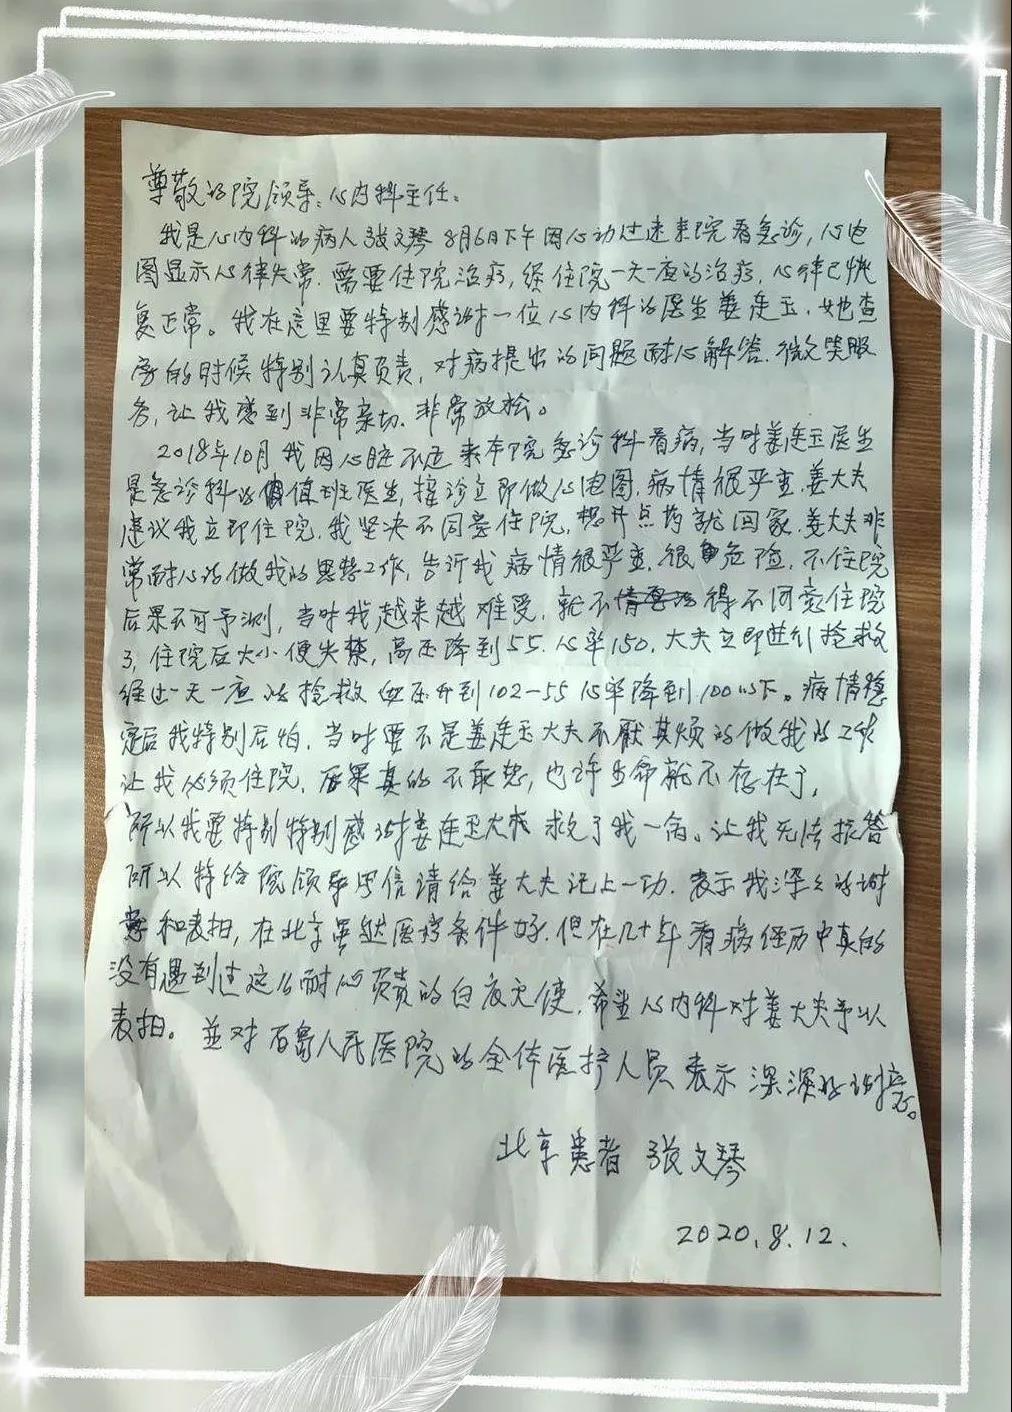 尊敬的院领导：心内科主任：
我是心内科的病人张文琴 8月6日下午因心动过速来院看急诊，心电
图显示心律失常．需要住院治疗，经住院一天一夜的治疗，心律已恢
复正常。我在这里要特别感谢一位心内科的医生姜连玉．她查
房的时候特别认真负责，对病提出的问题耐心解答．微笑服
务，让我感到非常亲切．非常放松。
2018年10月我因心脏不适来本院急诊科看病，当时姜连玉医生
是急诊科的值班医生，接诊立即做心电图．病情很严重．姜大夫
建议我立即住院．我坚决不同意住院，想开点药就回家．姜大夫非
常耐心的做我的思想工作，告诉我病情很严重．很危险．不住院
后果不可予测，当时我越来越难受．就不得不同意住院
了，住院后大小便失禁，高压降到55．心率150．大夫立即进行抢救
经过一天一夜的抢救血压升到102-55心率降到100以下。病情稳
定后我特别后怕．当时要不是姜连玉大夫不厌其烦的做我的工作
让我必须住院．后果真的不敢想，也许生命就不存在了，
所以我要特别特别感谢姜连玉大夫救了我一命。让我无法报答
所以特给院领导写信请给姜大夫记上一功．表示我深深的谢
意和表扬，在北京虽然医疗条件好．但在几十年看病经历中真的
没有遇到过这么耐心负责的白衣天使．希望心内科对姜大夫予以
表扬。並对石岛人民医院的全体医护人员表示深深的谢意。
北京患者 张文琴
2020.8.12.